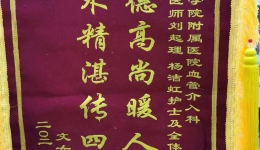 学院附属医院血管介入科
医师刘起理 杨洁虹护士及全体
德高尚暖人
术精湛传四
文
二〇二